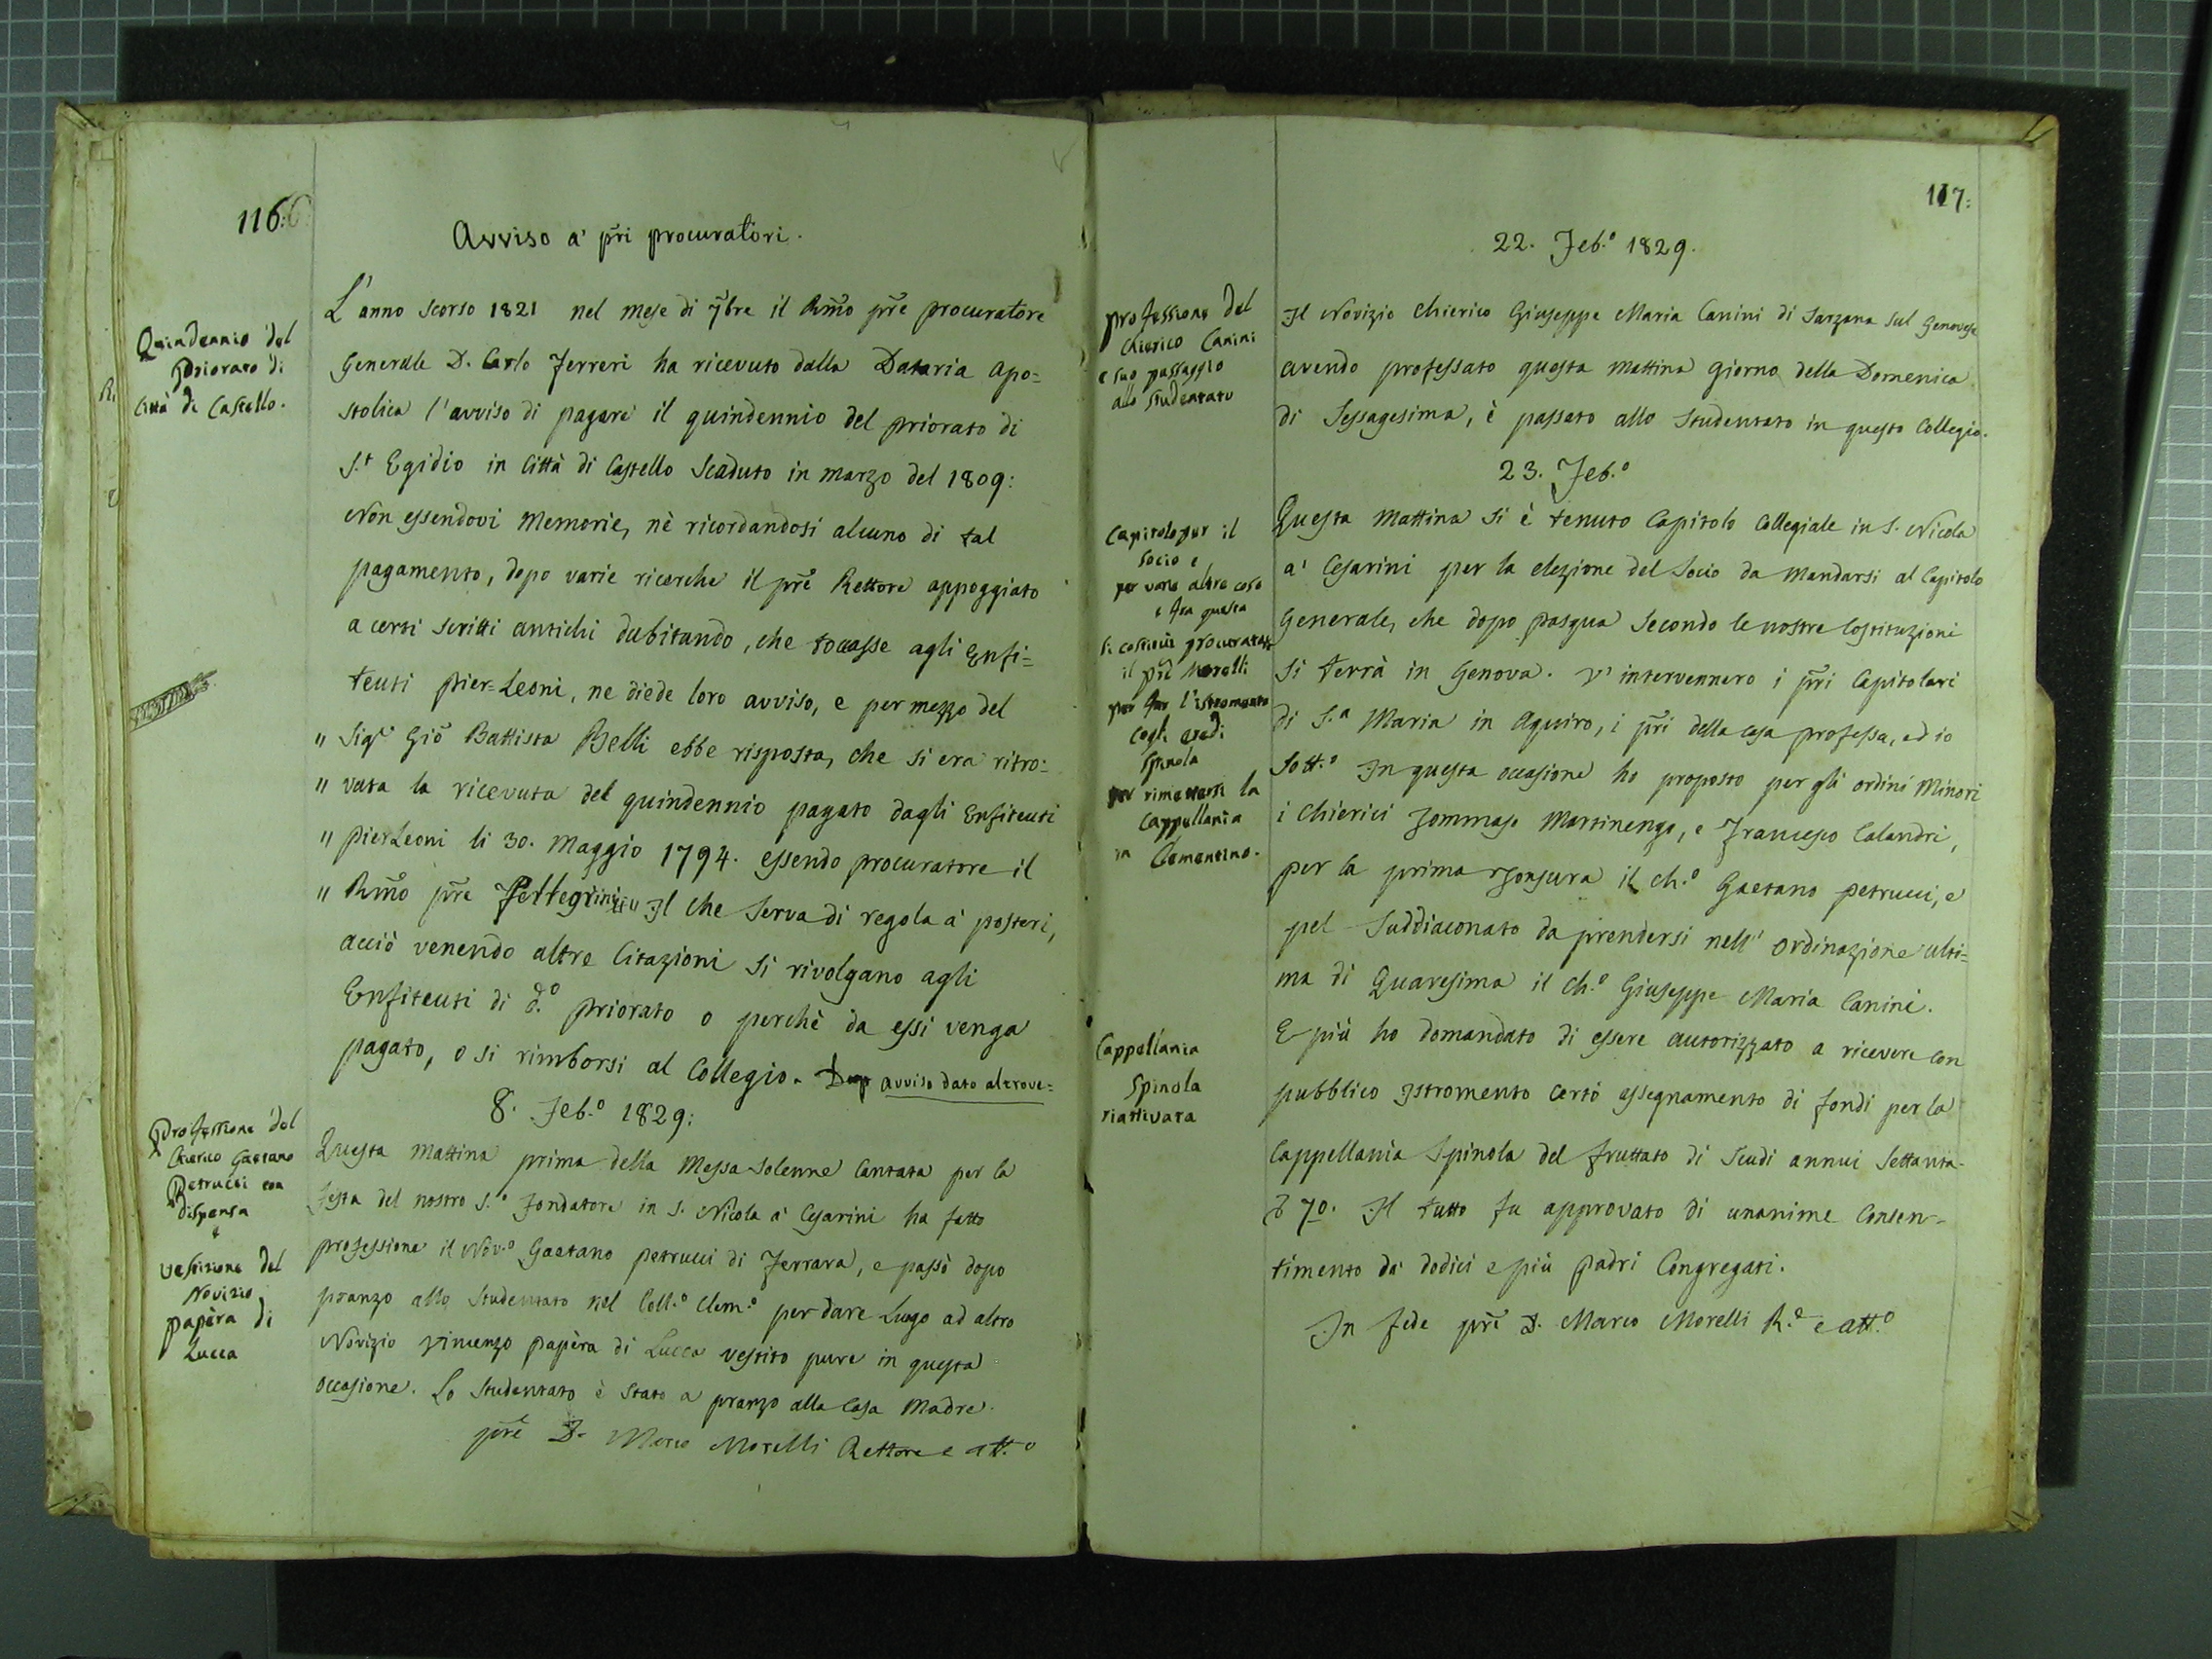 116.
Avviso a' pri procuratori.
Quindennio del
Priorato di
Città di Castello.
L'anno scorso 1821 nel mese di 7bre il Rmo pre procuratore
Generale D. Carlo Ferreri ha ricevuto dalla Dataria Apo=
stolica l'avviso di pagare il quindennio del priorato di
S.t Egidio in Città di Castello Scaduto in marzo del 1809:
Non essendovi memorie, nè ricordandosi alcuno di tal
pagamento, dopo varie ricerche il pre Rettore appoggiato
a certi scritti antichi dubitando, che toccasse agli Enfi=
teuti Pier=Leoni, ne diede loro avviso, e per mezzo del
" Sigr Gio Battista Belli ebbe risposta, che si era ritro=
" vata la ricevuta del quindennio pagato dagli Enfiteuti
" PierLeoni li 30. Maggio 1794. essendo procuratore il
" Rmo pre Pellegrini " Il che serva di regola a' posteri,
acciò venendo altre Citazioni si rivolgano agli
Enfiteuti di d.o priorato o perchè da essi venga
pagato, o si rimborsi al Collegio. Dup avviso dato altrove=
8. Feb.o 1829:
Professione del
Chierico Gaetano
Petrucci con
dispensa
e
vestizione del
Novizio
Papèra di
Lucca
Questa mattina prima della Messa Solenne Cantata per la
festa del nostro S.o Fondatore in S. Nicola a' Cesarini ha fatto
professione il Nov.o Gaetano Petrucci di Ferrara, e passò dopo
pranzo allo Studentato nel Coll.o Clem.o per dare luogo ad altro
Novizio Vincenzo Papèra di Lucca vestito pure in questa
occasione. Lo Studentato è stato a pranzo alla Casa Madre.
pre D. Marco Morelli Rettore e att.o
117:
22. Feb.o 1829.
professione del
Chierico Canini
e suo passaggio
allo studentato
Il Novizio Chierico Giuseppe Maria Canini di Sarzana sul Genovese
avendo professato questa mattina giorno della Domenica
di Sessagesima, è passato allo Studentato in questo Collegio.
23. Feb.o
Capitolo per il
socio e
per varie altre cose
e fra questa
si costituì procuratore
il pre Morelli
per far l'istromento
cogli eredi
Spinola
per rimettersi la
Cappellania
in Clementino.
Questa mattina si è tenuto Capitolo Collegiale in S. Nicola
a' Cesarini per la elezione del Socio da mandarsi al Capitolo
Generale, che dopo Pasqua secondo le nostre Costituzioni
si terrà in Genova. V'intervennero i pri Capitolari
di S.a Maria in Aquiro, i pri della casa professa, ed io
Sott.o In questa occasione ho proposto per gli ordini Minori
i Chierici Tommaso Martinengo, e Francesco Calandri,
per la prima Tonsura il ch.o Gaetano Petrucci, e
pel Suddiaconato da prendersi nell'ordinazione ulti=
ma di Quaresima il ch.o Giuseppe Maria Canini.
E più ho domandato di essere autorizzato a ricevere con
Cappellania
Spinola
riattivata
pubblico Istromento certo assegnamento di fondi per la
Cappellania Spinola del fruttato di Scudi annui Settanta-
70. Il tutto fu approvato di unanime Consen=
timento da' dodici e più Padri Congregati.
In fede pre D. Marco Morelli R.e e att.o